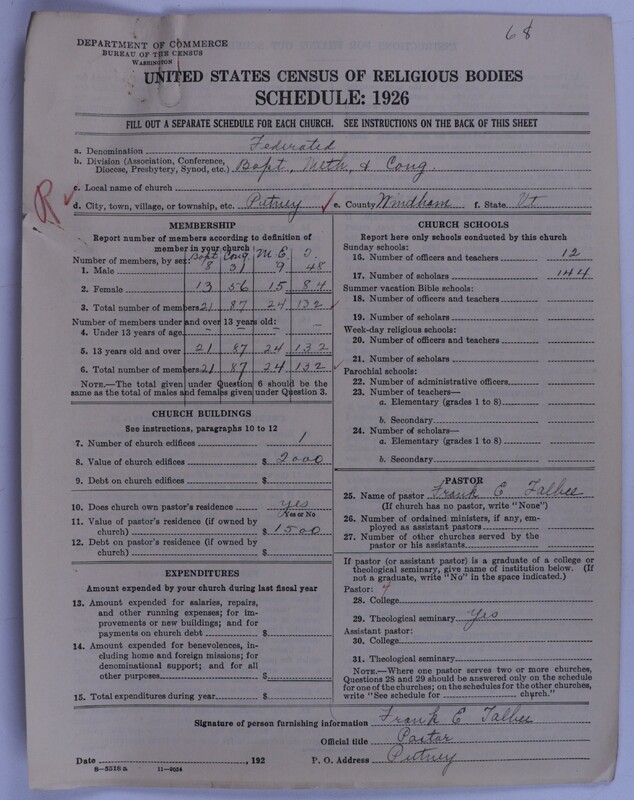 68
DEPARTMENT OF COMMERCE
BUREAU OF THE CENSUS
WASHINGTON
UNITED STATES CENSUS OF RELIGIOUS BODIES
SCHEDULE: 1926
FILL OUT A SEPARATE SCHEDULE FOR EACH CHURCH. SEE INSTRUCTIONS ON THE BACK OF THIS SHEET
a. Denomination Federated
b. Division (Association, Conference,
Diocese, Presbytery, Synod, etc.) Bapt, Meth, & Cong.
R
c. Local name of church
d. City, town, village, or township, etc. Putney e. County Windham f. State Vt
MEMBERSHIP
Report number of members according to definition of
member in your church
Number of members, by sex: Bapt Cong M E T.
1. Male 8 31 9 48
2. Female 13 56 15 84
3. Total number of members 21 87 24 132
Number of members under and over 13 years old:
4. Under 13 years of age
5. 13 years old and over 21 87 24 132
6. Total number of members 21 87 24 132
NOTE.—The total given under Question 6 should be the
same as the total of males and females given under Question 3.
CHURCH BUILDINGS
See instructions, paragraphs 10 to 12
7. Number of church edifices 1
8. Value of church edifices $ 2000
9. Debt on church edifices $
10. Does church own pastor's residence yes
Yes or No
11. Value of pastor's residence (if owned by
church) $ 1500
12. Debt on pastor's residence (if owned by
church) $
EXPENDITURES
Amount expended by your church during last fiscal year
13. Amount expended for salaries, repairs,
and other running expenses; for im-
provements or new buildings; and for
payments on church debt $
14. Amount expended for benevolences, in-
cluding home and foreign missions; for
denominational support; and for all
other purposes $
15. Total expenditures during year $
CHURCH SCHOOLS
Report here only schools conducted by this church
Sunday schools:
16. Number of officers and teachers 12
17. Number of scholars 144
Summer vacation Bible schools:
18. Number of officers and teachers
19. Number of scholars
Week-day religious schools:
20. Number of officers and teachers
21. Number of scholars
Parochial schools:
22. Number of administrative officers
23. Number of teachers—
a. Elementary (grades 1 to 8)
b. Secondary
24. Number of scholars—
a. Elementary (grades 1 to 8)
b. Secondary
PASTOR
25. Name of pastor Frank E Talbee
(If church has no pastor, write "None")
26. Number of ordained ministers, if any, em-
ployed as assistant pastors
27. Number of other churches served by the
pastor or his assistants
If pastor (or assistant pastor) is a graduate of a college or
theological seminary, give name of institution below. (If
not a graduate, write "No" in the space indicated.)
Pastor:
28. College
29. Theological seminary Yes
Assistant pastor:
30. College
31. Theological seminary
NOTE.—Where one pastor serves two or more churches,
Questions 28 and 29 should be answered only on the schedule
for one of the churches; on the schedules for the other churches,
write "See schedule for church."
Signature of person furnishing information Frank E Talbee
Official title Pastor
Date , 192 P. O. Address Putney
8—5518 a 11—9034